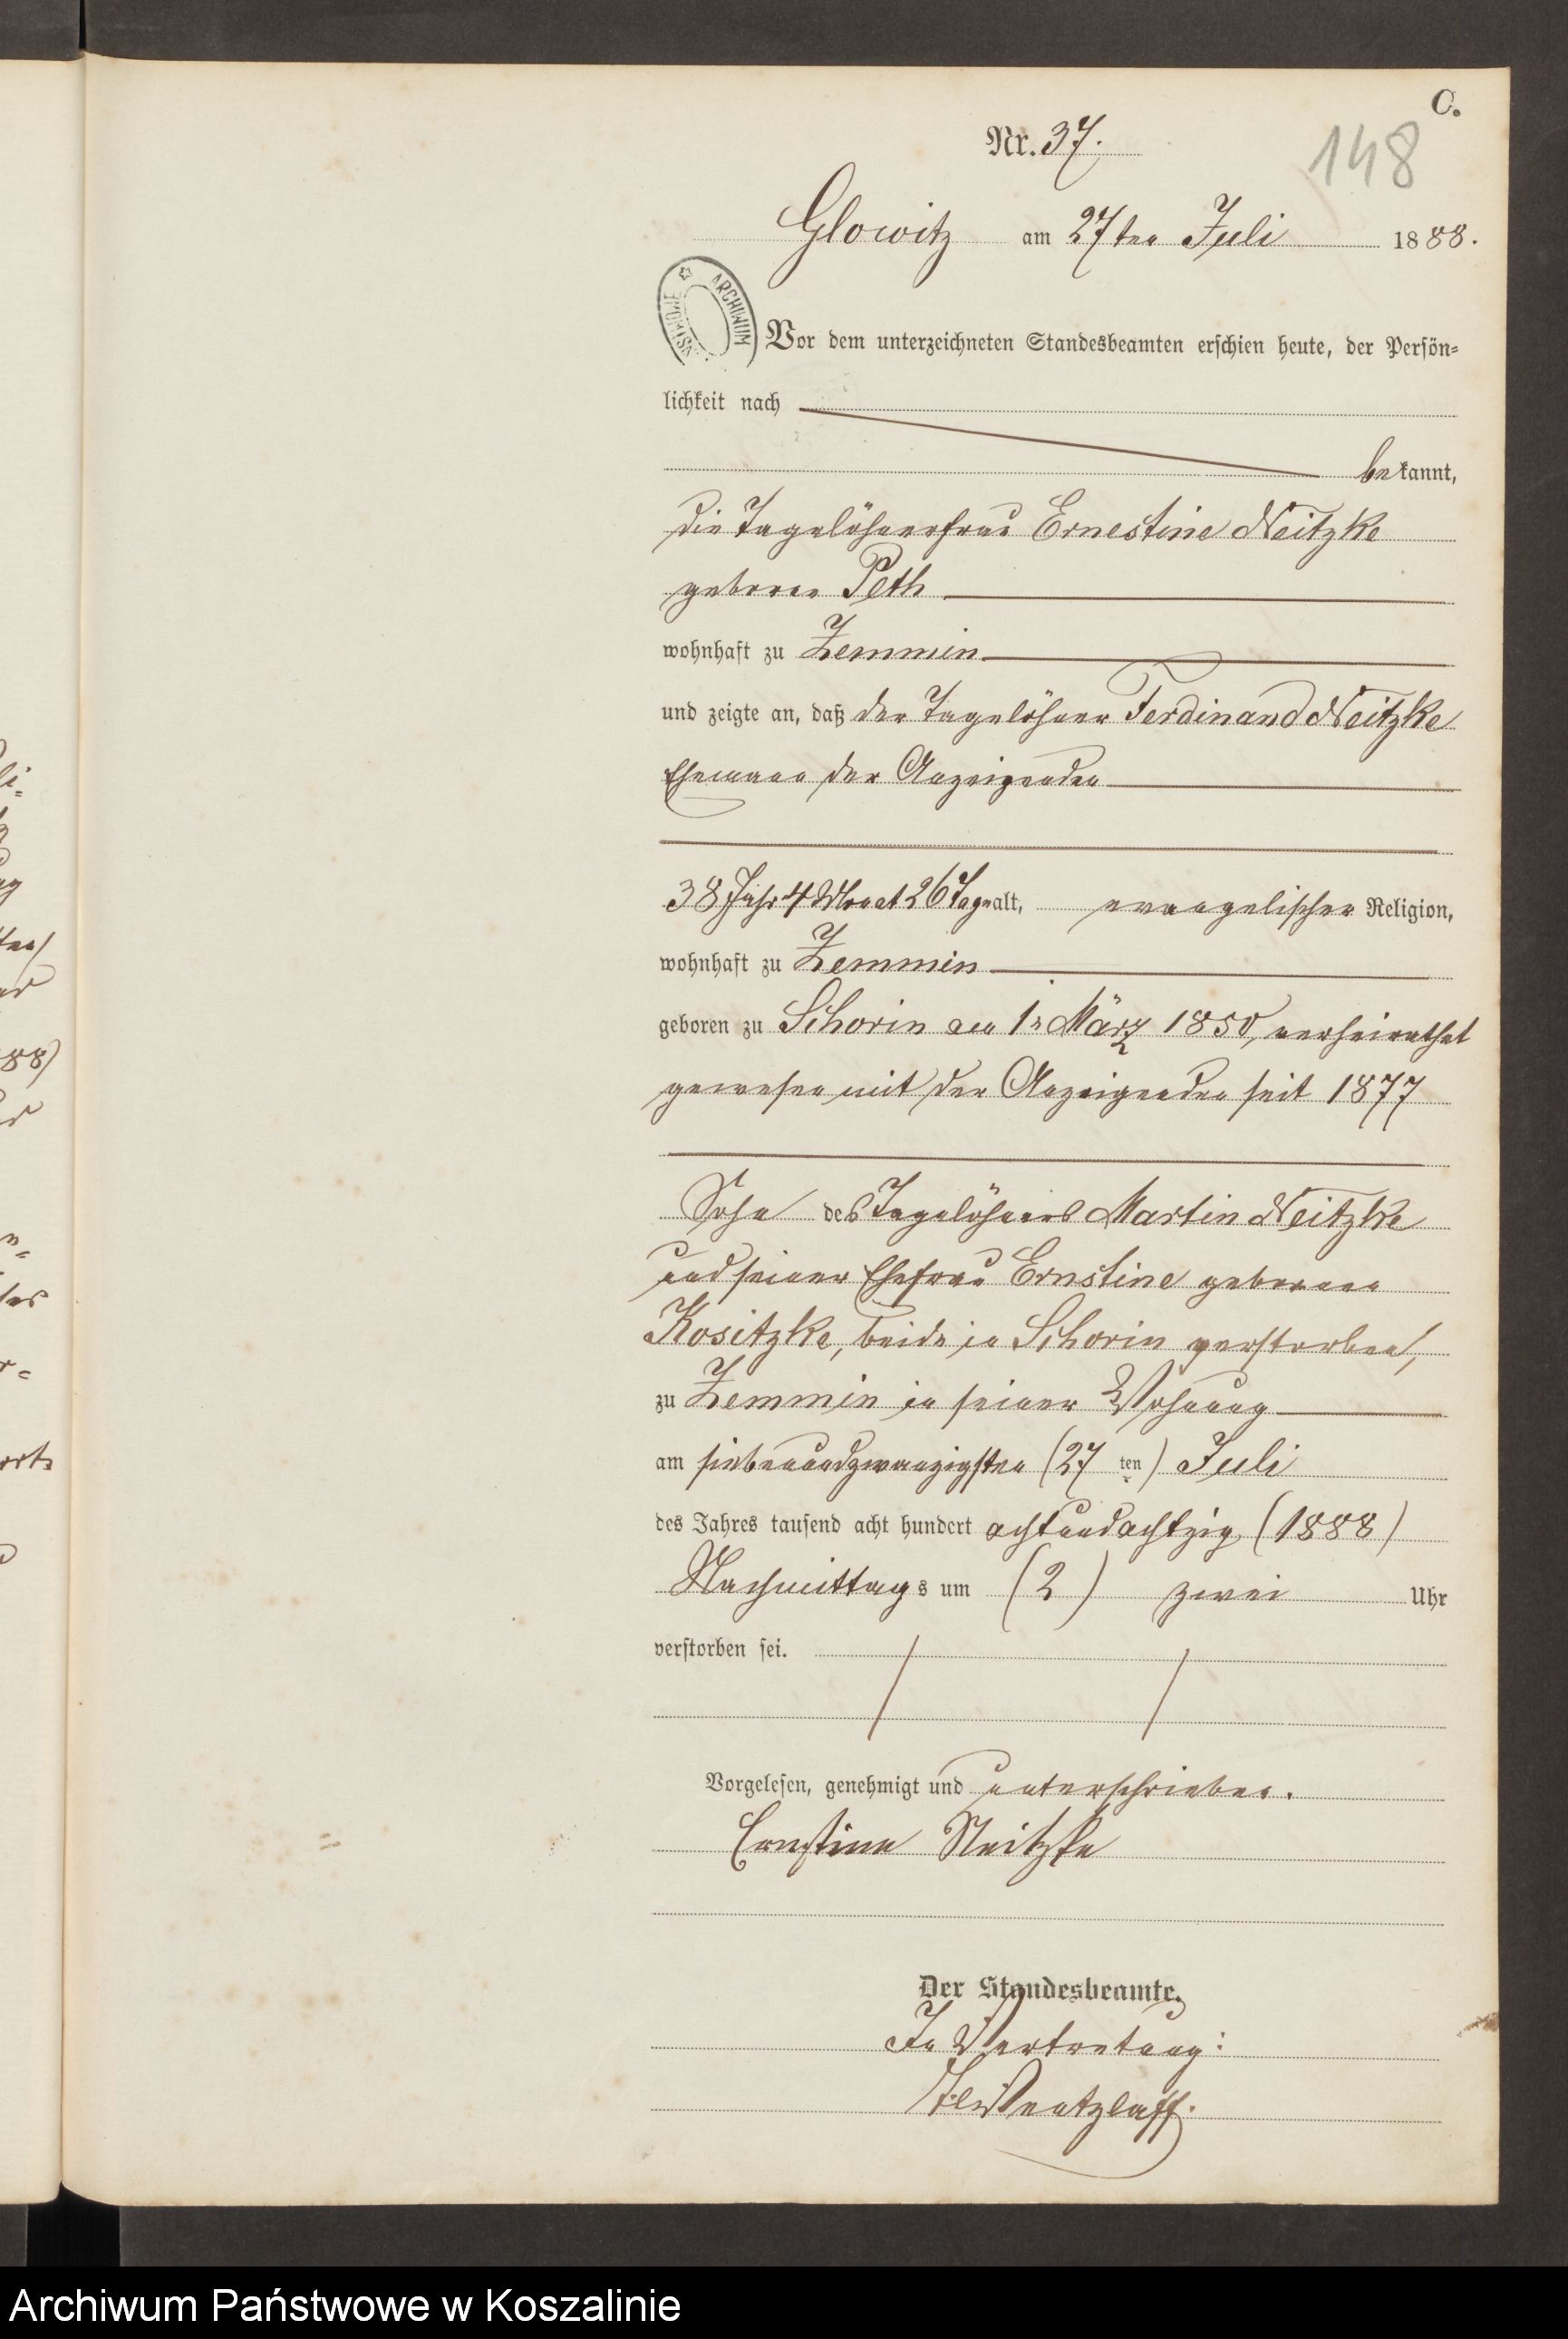 C.
Nr. 37.
148
Glowitz am 27ten Juli 1888.
ARCHIWUM
Vor dem unterzeichneten Standesbeamten erschien heute, der Persön-
lichkeit nach
bekannt,
die Tagelöhnerfrau Ernestine Neitzke
geboren Peth
wohnhaft zu Zemmin
und zeigte an, daß der Tagelöhner Ferdinand Neitzke
Ehemann der Anzeigenden
38 Jahr 4 Monat 26 Tage alt, evangelischer Religion,
wohnhaft zu Zemmin
geboren zu Schorin den 1n März 1850, verheirathet
gewesen mit der Anzeigenden seit 1877
Sohn des Tagelöhners Martin Neitzke
und seiner Ehefrau Ernstine geborenen
Kositzke, beide in Schorin verstorben,
zu Zemmin in seiner Wohnung
am siebenundzwanzigsten (27 ten) Juli
des Jahres tausend acht hundert achtundachtzig (1888)
Nachmittags um (2) zwei Uhr
verstorben sei.
Vorgelesen, genehmigt und unterschrieben.
Ernstine Neitzke
Der Standesbeamte.
In Vertretung:
Wentzlaff.
li-
88)
Archiwum Państwowe w Koszalinie